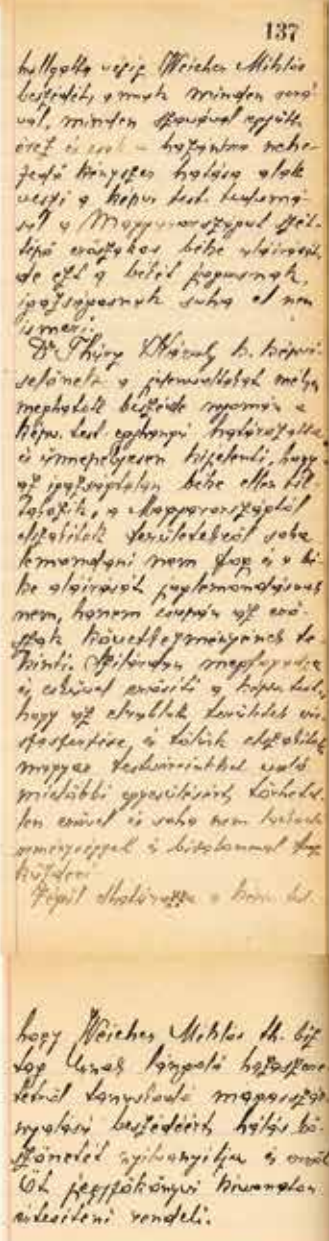 137
hallgatta végig Weicher Miklós
beszédét, annak minden sorá-
val, minden szavával együtt
érez és csak a hazánkra nehe-
zedő kényszer hatása alatt
veszi a képv. test. tudomá-
sul a Magyarországot szét-
tépő erőszakos béke aláírását,
de ezt a békét jogosnak,
igazságosnak soha el nem
ismeri.
Dr Thúry Károly h. képvi-
selőnek a
meghatott beszéde nyomán a
képv. test. egyhangú határozattal
és ünnepélyesen kijelenti, hogy
az igazságtalan béke ellen til-
takozik, a Magyarországtól
elszakított területekről soha
lemondani nem fog és a bé-
ke aláírását joglemondásnak
nem, hanem csupán az erő-
szak következményének te-
kinti. Szilárdan megfogadja
és esküvel erősíti a képv. test.,
hogy az elrabolt területek vis-
szaszerzése, és tőlünk elszakított
magyar testvéreinkkel való
mielőbbi egyesülésért törhetet-
len erővel és soha nem
reménységgel és bizalommal fog
küzdeni.
Végül elhatározza a képv. test.
hogy Weicher Miklós th. biz.
tag úrnak lángoló hazaszere-
tetről tanuskodó magasszár-
nyalású beszédéért hálás kö-
szönetét nyilvánítja és erről
Őt jegyzőkönyvi kivonaton
értesíteni rendeli.